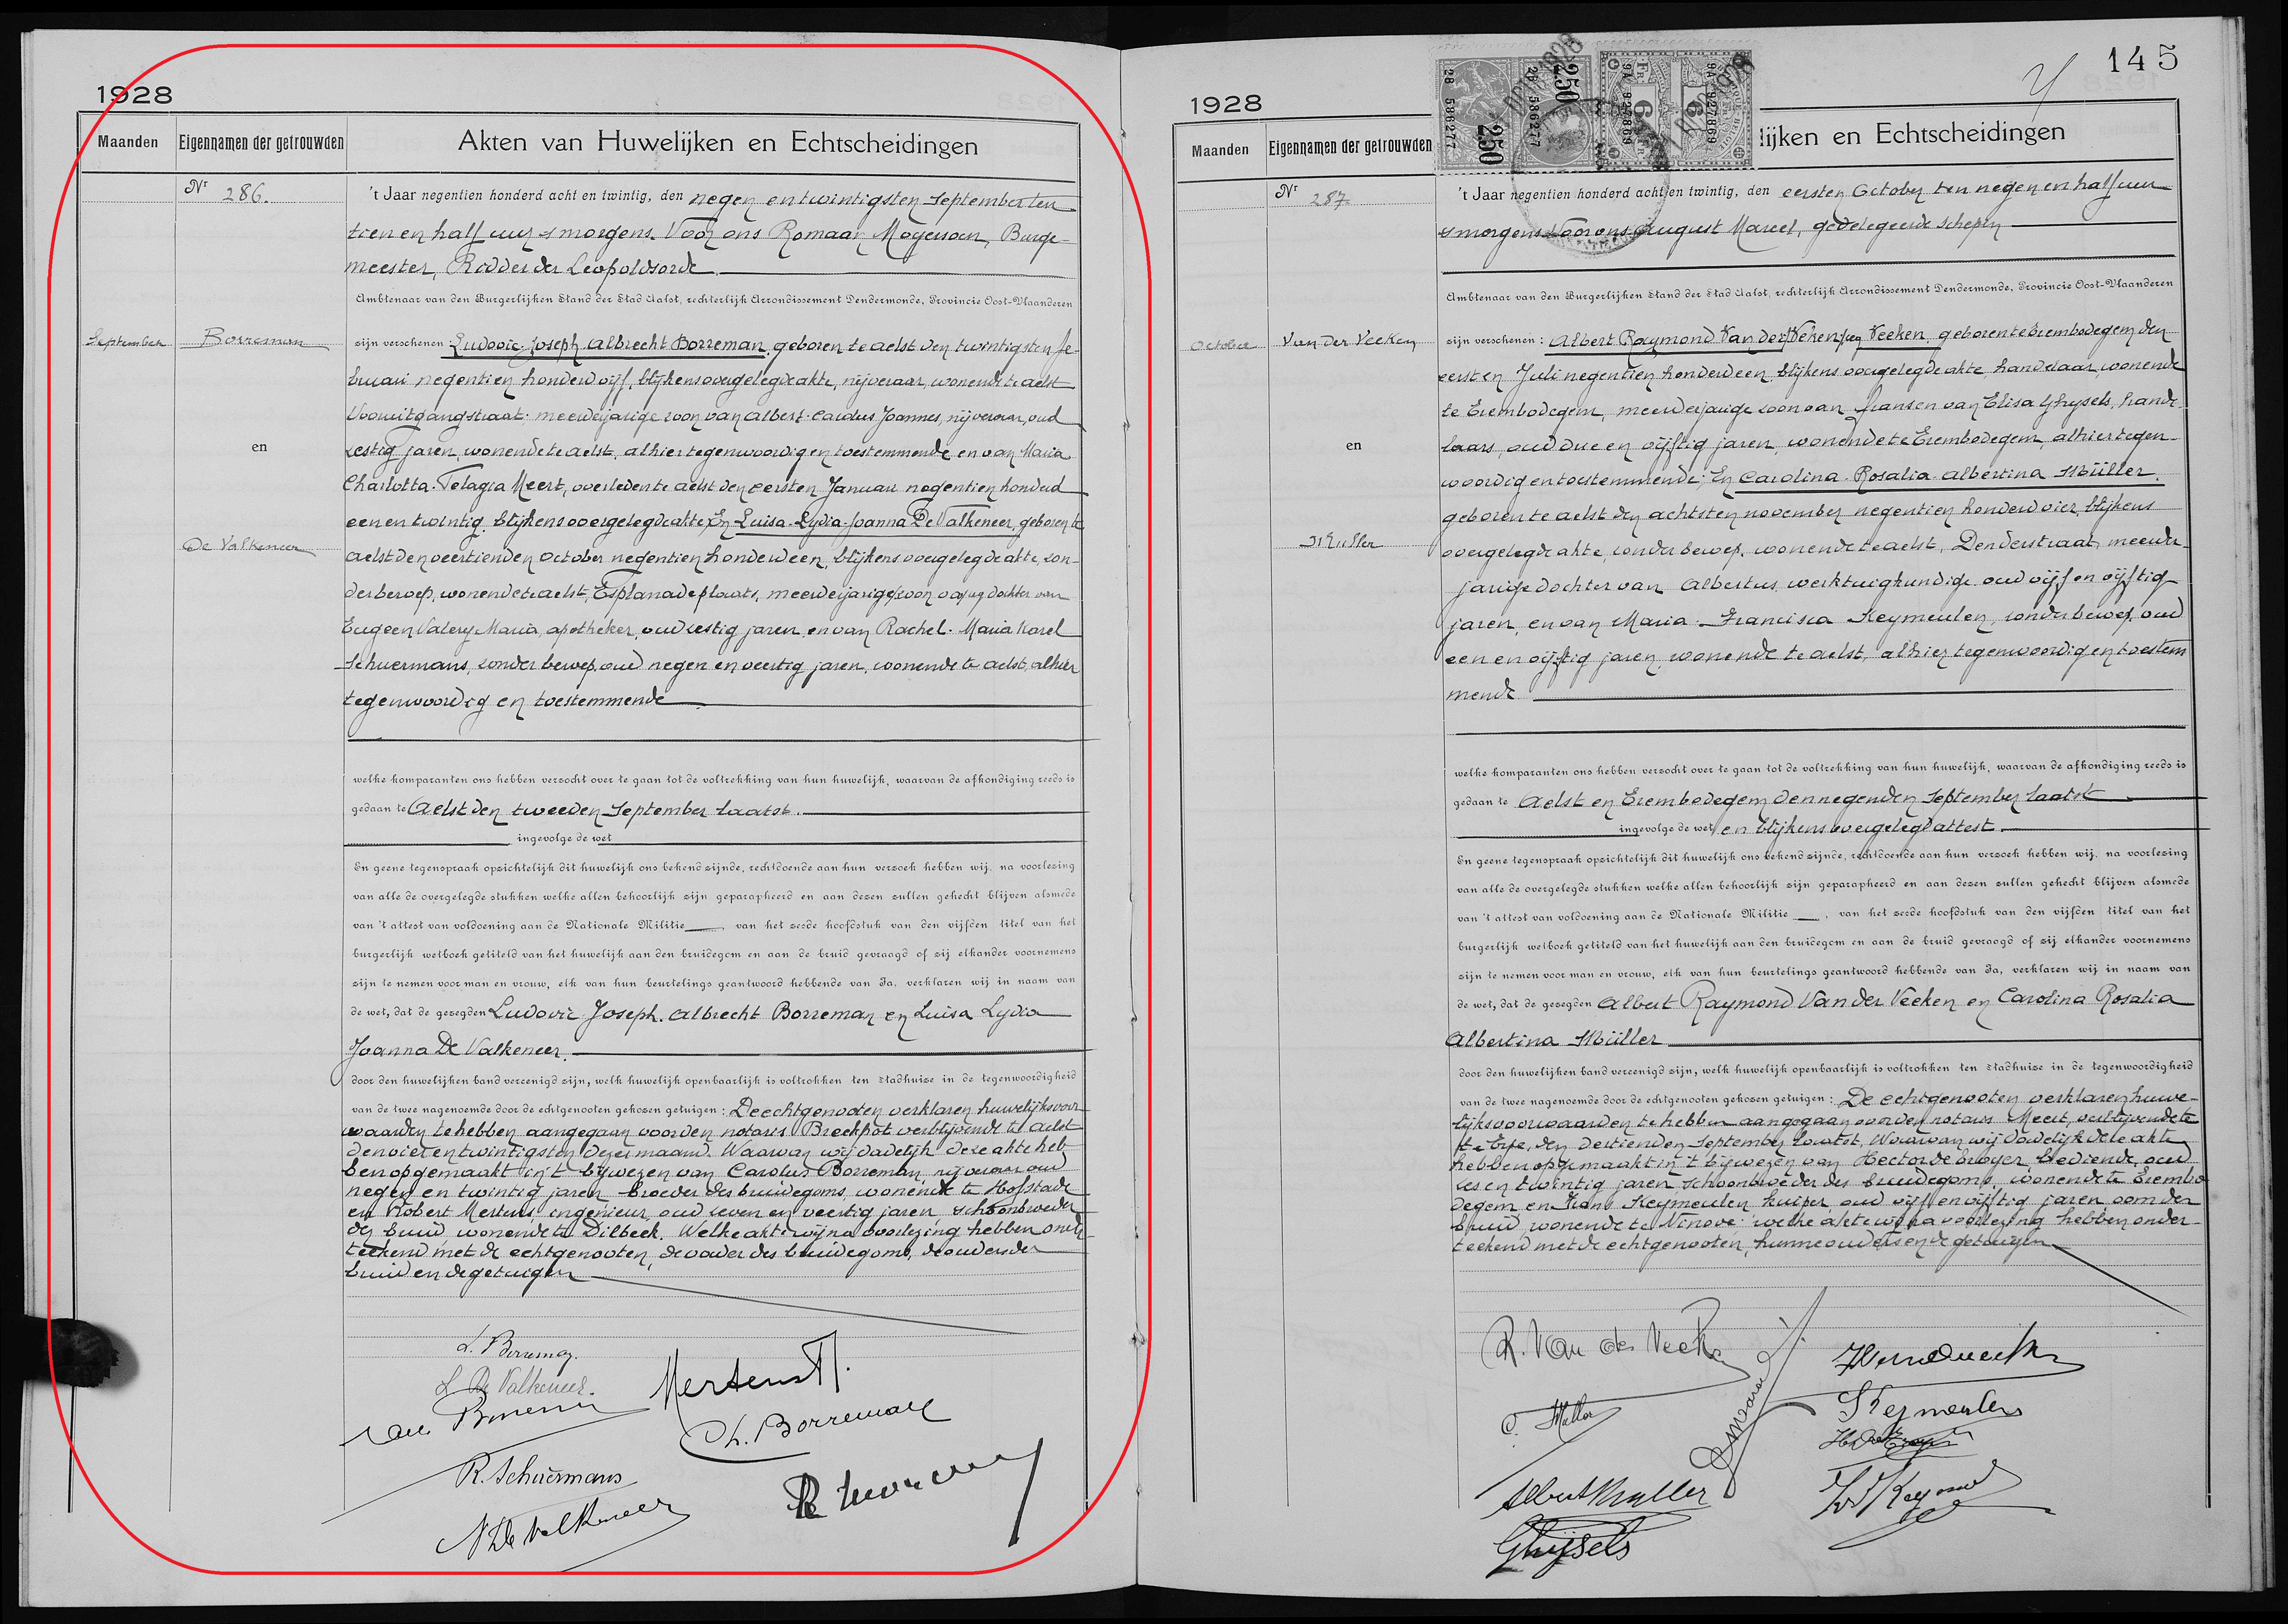 1928
Maanden
Eigennamen der getrouwden
Akten van Huwelijken en Echtscheidingen
Nr 286.
't Jaar negentien honderd acht en twintig, den negen en twintigsten September ten
tien en half uur smorgens. Voor ons Romaan Moyersoen, Burge-
meester, Ridder der Leopoldsorde
Ambtenaar van den Burgerlijken Stand der Stad Aalst, rechterlijk Arrondissement Dendermonde, Provincie Oost-Vlaanderen
September
Borreman
en
De Valkeneer
zijn verschenen: Ludovic Joseph Albrecht Borreman, geboren te Aelst den twintigsten Fe-
bruari negentien honderd vijf, blijkens overgelegde akte, nijveraar, wonende te Aelst
Vooruitgangstraat: meerderjarige zoon van Albert Carolus Joannes, nijveraar, oud
zestig jaren, wonende te Aelst, alhier tegenwoordig en toestemmende en van Maria
Charlotta Pelagia Meert, overleden te Aelst den eersten Januari negentien honderd
een en twintig, blijkens overgelegde akte, En Luisa-Lydia-Joanna De Valkeneer, geboren te
Aelst den veertienden October negentien honderd een, blijkens overgelegde akte, zon-
der beroep, wonende te Aelst, Esplanadeplaats, meerderjarige zoon van zeg dochter van
Eugeen Valery Maria, apotheker, oud zestig jaren, en van Rachel Maria Karel
Schuermans, zonder beroep, oud negen en veertig jaren, wonende te Aelst, alhier
tegenwoordig en toestemmende
welke komparanten ons hebben verzocht over te gaan tot de voltrekking van hun huwelijk, waarvan de afkondiging reeds is
gedaan te Aelst den tweeden September laatst.
ingevolge de wet
En geene tegenspraak opzichtelijk dit huwelijk ons bekend zijnde, rechtdoende aan hun verzoek hebben wij, na voorlezing
van alle de overgelegde stukken welke allen behoorlijk zijn geparapheerd en aan dezen zullen gehecht blijven alsmede
van 't attest van voldoening aan de Nationale Militie , van het zesde hoofdstuk van den vijfden titel van het
burgerlijk wetboek getiteld van het huwelijk aan den bruidegom en aan de bruid gevraagd of zij elkander voornemens
zijn te nemen voor man en vrouw, elk van hun beurtelings geantwoord hebbende van Ja, verklaren wij in naam van
de wet, dat de gezegden Ludovic Joseph Albrecht Borreman en Luisa Lydia
Joanna De Valkeneer.
door den huwelijken band vereenigd zijn, welk huwelijk openbaarlijk is voltrokken ten stadhuize in de tegenwoordigheid
van de twee nagenoemde door de echtgenooten gekozen getuigen: De echtgenooten verklaren huwelijksvoor-
waarden te hebben aangegaan voor den notaris Breckpot verblijvende te Aelst
den vier en twintigsten dezer maand. Waarvan wij dadelijk deze akte heb-
ben opgemaakt in 't bijwezen van Carolus Borreman, nijveraar oud
negen en twintig jaren broeder des bruidegoms, wonende te Hofstade
en Robert Mertens ingenieur, oud zeven en veertig jaren schoonbroeder
der bruid, wonende te Dilbeek. Welke akte wij na voorlezing hebben onder-
teekend met de echtgenooten, de vader des bruidegoms, de ouders der
bruid en de getuigen
L. Borreman.
L De Valkeneer.
Mertens R.
Ch. Borreman
R. Schuermans
De Valkeneer
145
1928
Maanden
Eigennamen der getrouwden
lijken en Echtscheidingen
28 586277
250
9A 927869
FR 6
Nr 287.
't Jaar negentien honderd acht en twintig, den eersten October ten negen en half uur
smorgens Voor ons August Marcel, gedelegeerde schepen
Ambtenaar van den Burgerlijken Stand der Stad Aalst, rechterlijk Arrondissement Dendermonde, Provincie Oost-Vlaanderen
October
Van Der Veeken
en
Müller
zijn verschenen: Albert Raymond Van der Veken zeg Veeken, geboren te Erembodegem den
eersten Juli negentien honderd een, blijkens overgelegde akte, handelaar, wonende
te Erembodegem, meerderjarige zoon van Frans en van Elisa Ghysels, hande-
laars, oud drie en vijftig jaren, wonende te Erembodegem, alhier tegen-
woordig en toestemmende; En Carolina Rosalia Albertina Müller,
geboren te Aelst den achtsten november negentien honderd vier, blijkens
overgelegde akte, zonder beroep, wonende te Aelst, Denderstraat, meerder-
jarige dochter van Albertus, werktuigkundige, oud vijf en vijftig
jaren, en van Maria Francisca Keymeulen, zonder beroep, oud
een en vijftig jaren, wonende te Aelst, alhier tegenwoordig en toestem
mende
welke komparanten ons hebben verzocht over te gaan tot de voltrekking van hun huwelijk, waarvan de afkondiging reeds is
gedaan te Aelst en Erembodegem den negenden September laatst
ingevolge de wet en blijkens overgelegd attest.
En geene tegenspraak opzichtelijk dit huwelijk ons bekend zijnde, rechtdoende aan hun verzoek hebben wij, na voorlezing
van alle de overgelegde stukken welke allen behoorlijk zijn geparapheerd en aan dezen zullen gehecht blijven alsmede
van 't attest van voldoening aan de Nationale Militie , van het zesde hoofdstuk van den vijfden titel van het
burgerlijk wetboek getiteld van het huwelijk aan den bruidegom en aan de bruid gevraagd of zij elkander voornemens
zijn te nemen voor man en vrouw, elk van hun beurtelings geantwoord hebbende van Ja, verklaren wij in naam van
de wet, dat de gezegden Albert Raymond Van der Veeken en Carolina Rosalia
Albertina Müller
door den huwelijken band vereenigd zijn, welk huwelijk openbaarlijk is voltrokken ten stadhuize in de tegenwoordigheid
van de twee nagenoemde door de echtgenooten gekozen getuigen: De echtgenooten verklaren huwe-
lijksvoorwaarden te hebben aangegaan voor den notaris Meert, verblijvende te
te Erpe, den dertienden September laatst, Waarvan wij dadelijk deze akte
hebben opgemaakt in 't bijwezen van Hector de Croyer bediende, oud
zes en twintig jaren schoonbroeder des bruidegoms, wonende te Erembo-
degem en Frans Keymeulen kuiper, oud vijf en vijftig jaren oom der
bruid, wonende te Ninove: welke akte wij na voorlezing hebben onder-
teekend met de echtgenooten, hunne ouders en de getuigen
R. Van der Veeken
C. Müller
Keymeulen
Albert Muller
Ghijsels